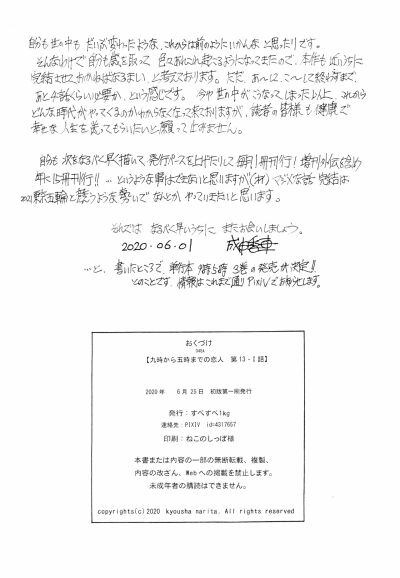 自分も世の中も だいぶ変わったような、これからは前のようにいかんな と思ったりです。
そんなわけで自分も歳を取って 色々あれこれ起こるようになってきたので、本作も近いうちに
完結させておかねばなるまい、と考えております。ただ、あーして、こーして終わるまで、
あと4話くらい必要か、という感じです。今や世の中がこうなってしまった以上、これから
どんな時代がやってくるのかわからなくなって来ておりますが、読者の皆様も健康で
幸せな人生を送ってもらいたいと願って止みません。
自分も 次をなるべく早く描いて 発行ペースを上げたりして 毎月1冊刊行!増刊外伝を含め
年に15冊刊行!!…というような事はできないと思いますが(オイ) マジメな話、完結は
2021東京五輪と競うような勢いで なんとか、やっていきたいと思います。
それでは なるべく早いうちに またお会いしましょう。
2020.06.01 成田香車
…と、書いたところで、単行本 9時5時 3巻の発売が決定!!
とのことです、情報はこれまで通りPixivでお知らせします。
おくづけ
【九時から五時までの恋人 第13-I話】
2020年 6月25日 初版第一刷発行
発行:すべすべ1kg
連絡先:PIXIV id=4317657
印刷:ねこのしっぽ様
本書または内容の一部の無断転載、複製、
内容の改ざん、Webへの掲載を禁止します。
未成年者の購読はできません。
copyrights(c) 2020 kyousha narita. All rights reserved